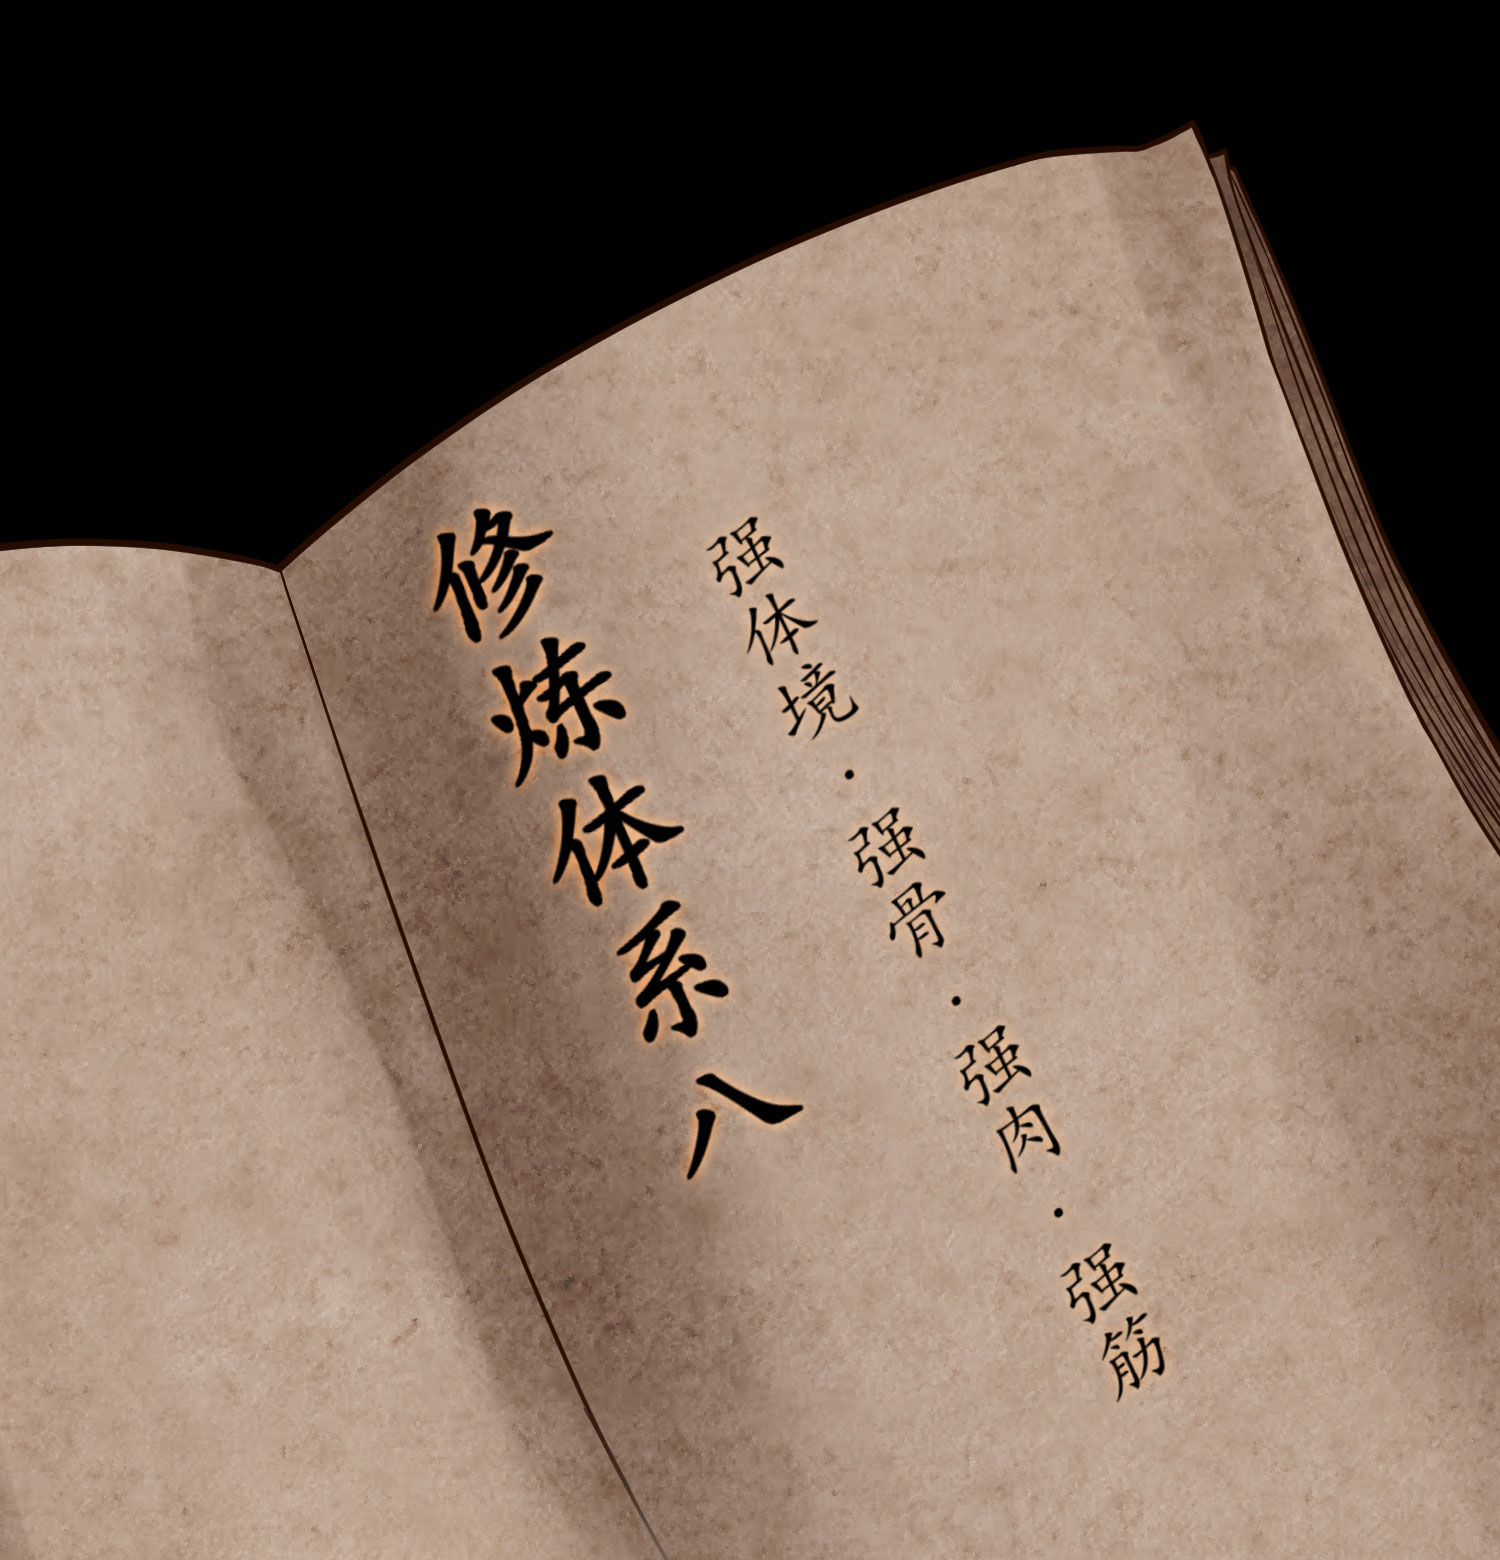 修炼体系八
强体境·强骨·强肉·强筋